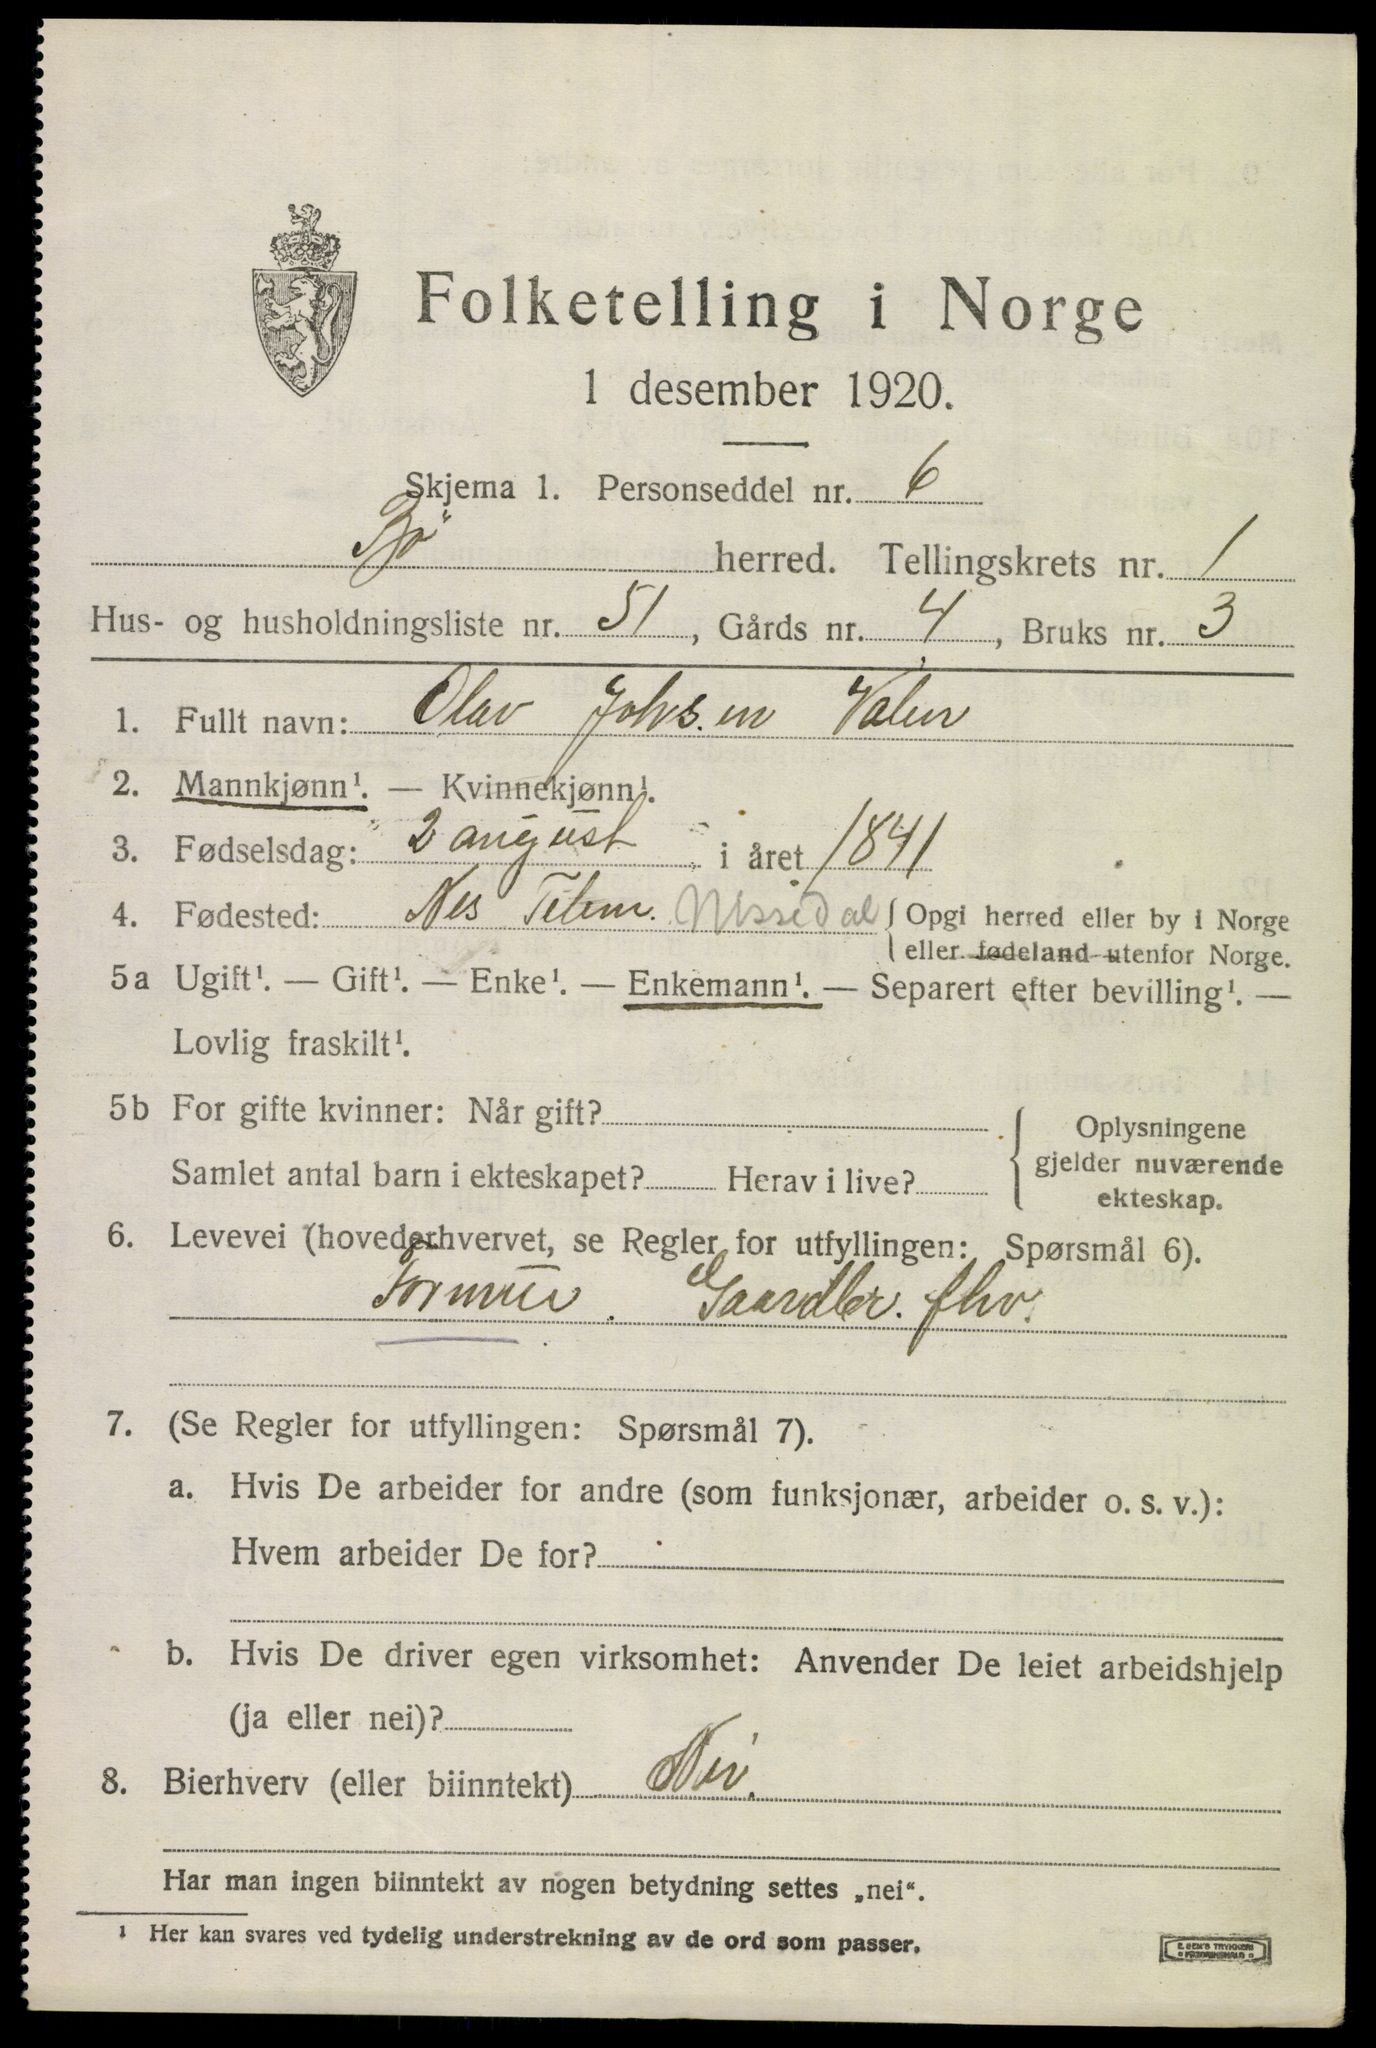 Folketelling i Norge
1 desember 1920.
Skjema 1. Personseddel nr. 6
Bø herred. Tellingskrets nr. 1
Hus- og husholdningsliste nr. 51, Gårds nr. 4, Bruks nr. 3
1. Fullt navn: Olav Johs.en Valen
2. Mannkjønn¹. — Kvinnekjønn¹.
3. Fødselsdag: 2 august i året 1841
4. Fødested: Nes Telem. Nissedal { Opgi herred eller by i Norge
eller fødeland utenfor Norge.
5a Ugift¹. — Gift¹. — Enke¹. — Enkemann¹. — Separert efter bevilling¹. —
Lovlig fraskilt¹.
5b For gifte kvinner: Når gift?
Samlet antal barn i ekteskapet? Herav i live?
{ Oplysningene
gjelder nuværende
ekteskap.
6. Levevei (hovederhvervet, se Regler for utfyllingen: Spørsmål 6).
Formue. Gaardbr. fhv.
7. (Se Regler for utfyllingen: Spørsmål 7).
a. Hvis De arbeider for andre (som funksjonær, arbeider o. s. v.):
Hvem arbeider De for?
b. Hvis De driver egen virksomhet: Anvender De leiet arbeidshjelp
(ja eller nei)?
8. Bierhverv (eller biinntekt) Nei.
Har man ingen biinntekt av nogen betydning settes „nei“.
¹ Her kan svares ved tydelig understrekning av de ord som passer.